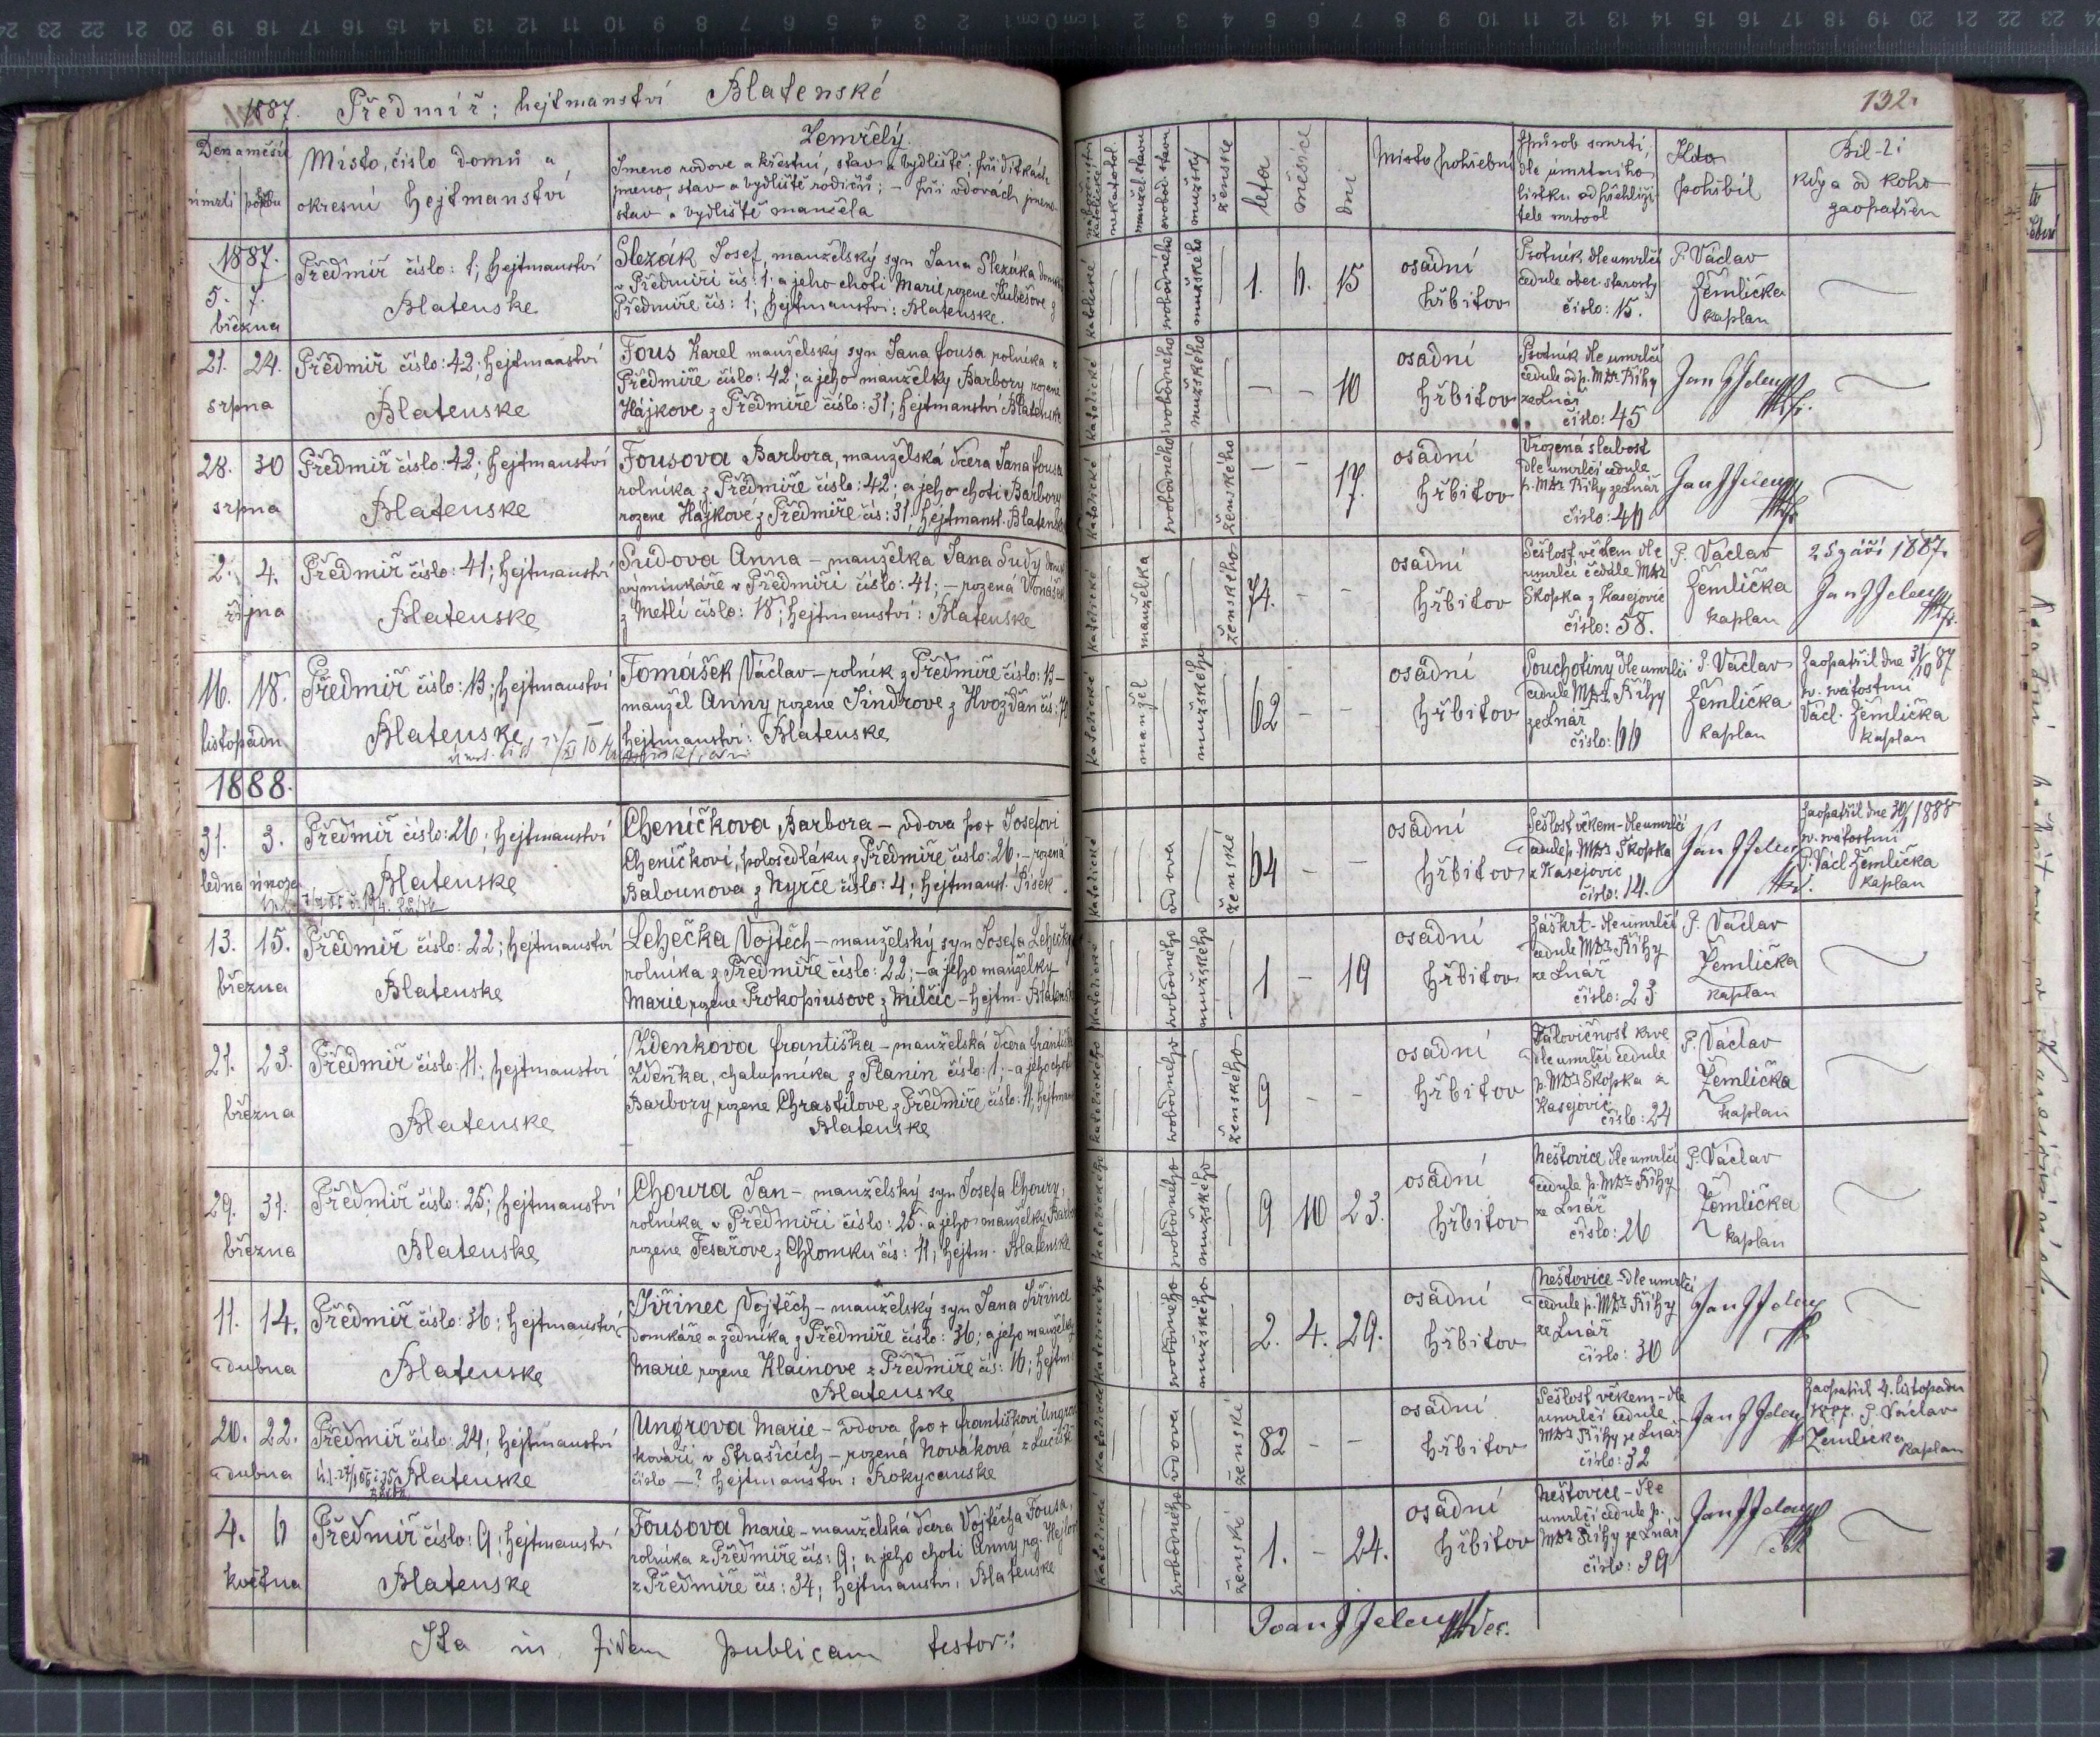 1887. Předmíř; hejtmanství Blatenské
132.
Den a měsíc
úmrtí pohřbu
Místo, číslo domu a
okresní hejtmanství
Zemřelý.
Jmeno rodove a křestní, stav a bydliště, při dítkách
jmeno, stav a bydliště rodičů; – při vdovách jmeno
stav a bydliště manžela
manžel. stavu
svobod. stavu
mužský
ženské
leta
měsíce
dni
Místo pohřební
Spůsob smrti,
dle úmrtního
lístku od prohlíži-
tele mrtvol
Kdo
pohřbil
Bil-li
kdy a od koho
zaopatřen
1887.
5. 7.
března
Předmíř číslo: 1; hejtmanství
Blatenske
Slezák Josef, manželský syn Jana Slezáka
v Předmíři čís: 1. a jeho choti Marie rozene Kubešove z
Předmíře čís: 1; hejtmanstvi: Blatenske.
katolické
svobodného
mužského
1. 15
osádní
hřbitov
Psotník dle umrlčí
cedule obec. starosty
číslo: 15.
P. Václav
Žemlička
kaplan
21. 24.
srpna
Předmíř číslo: 42; hejtmanství
Blatenske
Fous Karel manželský syn Jana Fousa rolníka z
Předmíře číslo: 42; a jeho manželky Barbory rozene
Hájkove z Předmíře číslo: 31; hejtmanství Blatenske
katolické
svobodného
mužského
– – 10
osádní
hřbitov
Psotník dle umrlčí
cedule od p. MDr Říhy
ze Lnář
číslo: 45
28. 30
srpna
Předmíř číslo: 42; hejtmanství
Blatenske
Fousova Barbora, manželská dcera Jana Fousa
rolníka z Předmíře číslo: 42; a jeho choti Barbory
rozene Hájkové z Předmíře čís: 31. hejtmanst. Blatenske
katolické
svobodného
ženského
– – 17.
osádní
hřbitov
Vrozená slabost
dle umrlčí cedule
p. MDr Říhy ze Lnář
2. 4.
října
Předmíř číslo: 41; hejtmanství
Blatenske
Sudova Anna – manželka Jana Sudy
výminkáře v Předmíři číslo: 41; – rozená
z Metlí číslo: 18; hejtmanství: Blatenske
katolické
manželka
ženského
74. – –
osádní
hřbitov
Sešlost věkem dle
umrlčí cedule MDr
Škopka z Kasejovic
číslo: 58.
P. Václav
Žemlička
kaplan
25 září 1887.
16. 18.
listopadu
Předmíř číslo: 13; hejtmanství
Blatenske
Tomášek Václav – rolník z Předmíře číslo: 13 –
manžel Anny rozene Jindrove z Hvožďan
hejtmanství: Blatenske
katolické
manžel
mužského
62 – –
osádní
hřbitov
Souchotiny dle umrlčí
cedule MDr. Říhy
ze Lnář
P. Václav
Žemlička
kaplan
Zaopatřil dne 31/10 87
sv. svátostmi
Václ. Žemlička
kaplan
1888.
31. 3.
ledna února
Předmíř číslo: 26; hejtmanství
Blatenske
Cheníčkova Barbora – vdova po † Josefovi
Cheníčkovi, polosedláku z Předmíře číslo: 26; – rozená
Balounova z Nyrče číslo: 4; hejtmanst. Písek
katolické
vdova
ženské
64 – –
osádní
hřbitov
Sešlost věkem – dle umrlčí
cedule p. MDr Škopka
z Kasejovic
číslo: 14.
Zaopatřil dne 30/1 1888
sv. svátostmi
P. Václ Žemlička
kaplan
13. 15.
března
Předmíř číslo: 22; hejtmanství
Blatenske
Lehečka Vojtěch – manželský syn Josefa Lehečky
rolníka z Předmíře číslo: 22; – a jeho manželky
Marie rozene Prokopiusove z Milčic – hejtm – Blatenske
katolické
svobodného
mužského
1 – 19
osádní
hřbitov
Záškrt – dle umrlčí
cedule MDr Říhy
ze Lnář
číslo: 23
P. Václav
Žemlička
kaplan
21. 23.
března
Předmíř číslo: 11; hejtmanství
Blatenske
Zdenkova Františka – manželská dcera Františka
Zdeňka, chalupníka z Planin číslo: 1; – a jeho choti
Barbory rozene Chrastilove z Předmíře číslo: 11; hejtman
Blatenske
katolického
svobodného
ženského
9 – –
osádní
hřbitov
krve
dle umrlčí cedule
p. MDr Škopka z
Kasejovic
číslo: 24
P. Václav
Žemlička
kaplan
29. 31.
března
Předmíř číslo: 25; hejtmanství
Blatenske
Choura Jan – manželský syn Josefa Choury,
rolníka v Předmíři číslo: 25. a jeho manželky
rozene Tesařove z Chlomku čís: 11; hejtm – Blatenske
katolického
svobodného
mužského
9 10 23.
osádní
hřbitov
Neštovice dle umrlčí
cedule p. MDr Říhy
ze Lnář
číslo: 26
P. Václav
Žemlička
kaplan
11. 14.
dubna
Předmíř číslo: 36; hejtmanství
Blatenske
Jiřinec Vojtěch – manželský syn Jana Jiřince
domkáře a zedníka z Předmíře číslo: 36; a jeho manželky
Marie rozene Klainove z Předmíře čís: 16; hejtm
Blatenske
katolického
svobodného
mužského
2. 4. 29.
osádní
hřbitov
Neštovice – dle umrlčí
cedule p. MDr Říhy
ze Lnář
číslo: 30
20. 22.
dubna
Předmíř číslo: 24; hejtmanství
Blatenske
Ungrova Marie – vdova po † Františkovi Ungrovi
kováři v Strašicích – rozená Nováková z
číslo —? hejtmanství: Rokycanske
katolické
vdova
ženské
82 – –
osádní
hřbitov
Sešlost věkem – dle
umrlčí cedule
MDr Říhy ze Lnář
číslo: 32
Zaopatřil 4. listopadu
1887. P. Václav
Žemlička
kaplan
4. 6
května
Předmíř číslo: 9; hejtmanství
Blatenske
Fousova Marie – manželská dcera Vojtěcha Fousa,
rolníka z Předmíře čís: 9; a jeho choti Anny roz.
z Předmíře čís: 34; hejtmanství: Blatenske
katolické
svobodného
ženské
1. – 24.
osádní
hřbitov
Neštovice – dle
umrlčí cedule p.
MDr Říhy ze Lnář
číslo: 39
Ita in fidem publicam testor: